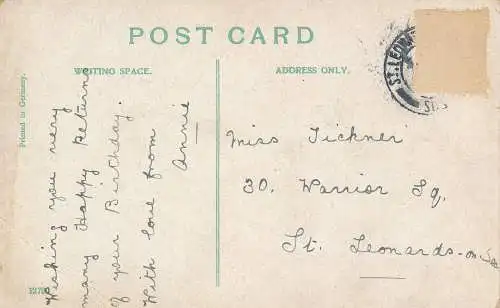 POST CARD
WRITING SPACE.
ADDRESS ONLY.
Printed in Germany.
Wishing you very
many Happy Returns
of your Birthday.
With love from
Annie
Miss Tickner
30. Warrior Sq.
St. Leonards-on-Sea
ST. LEON